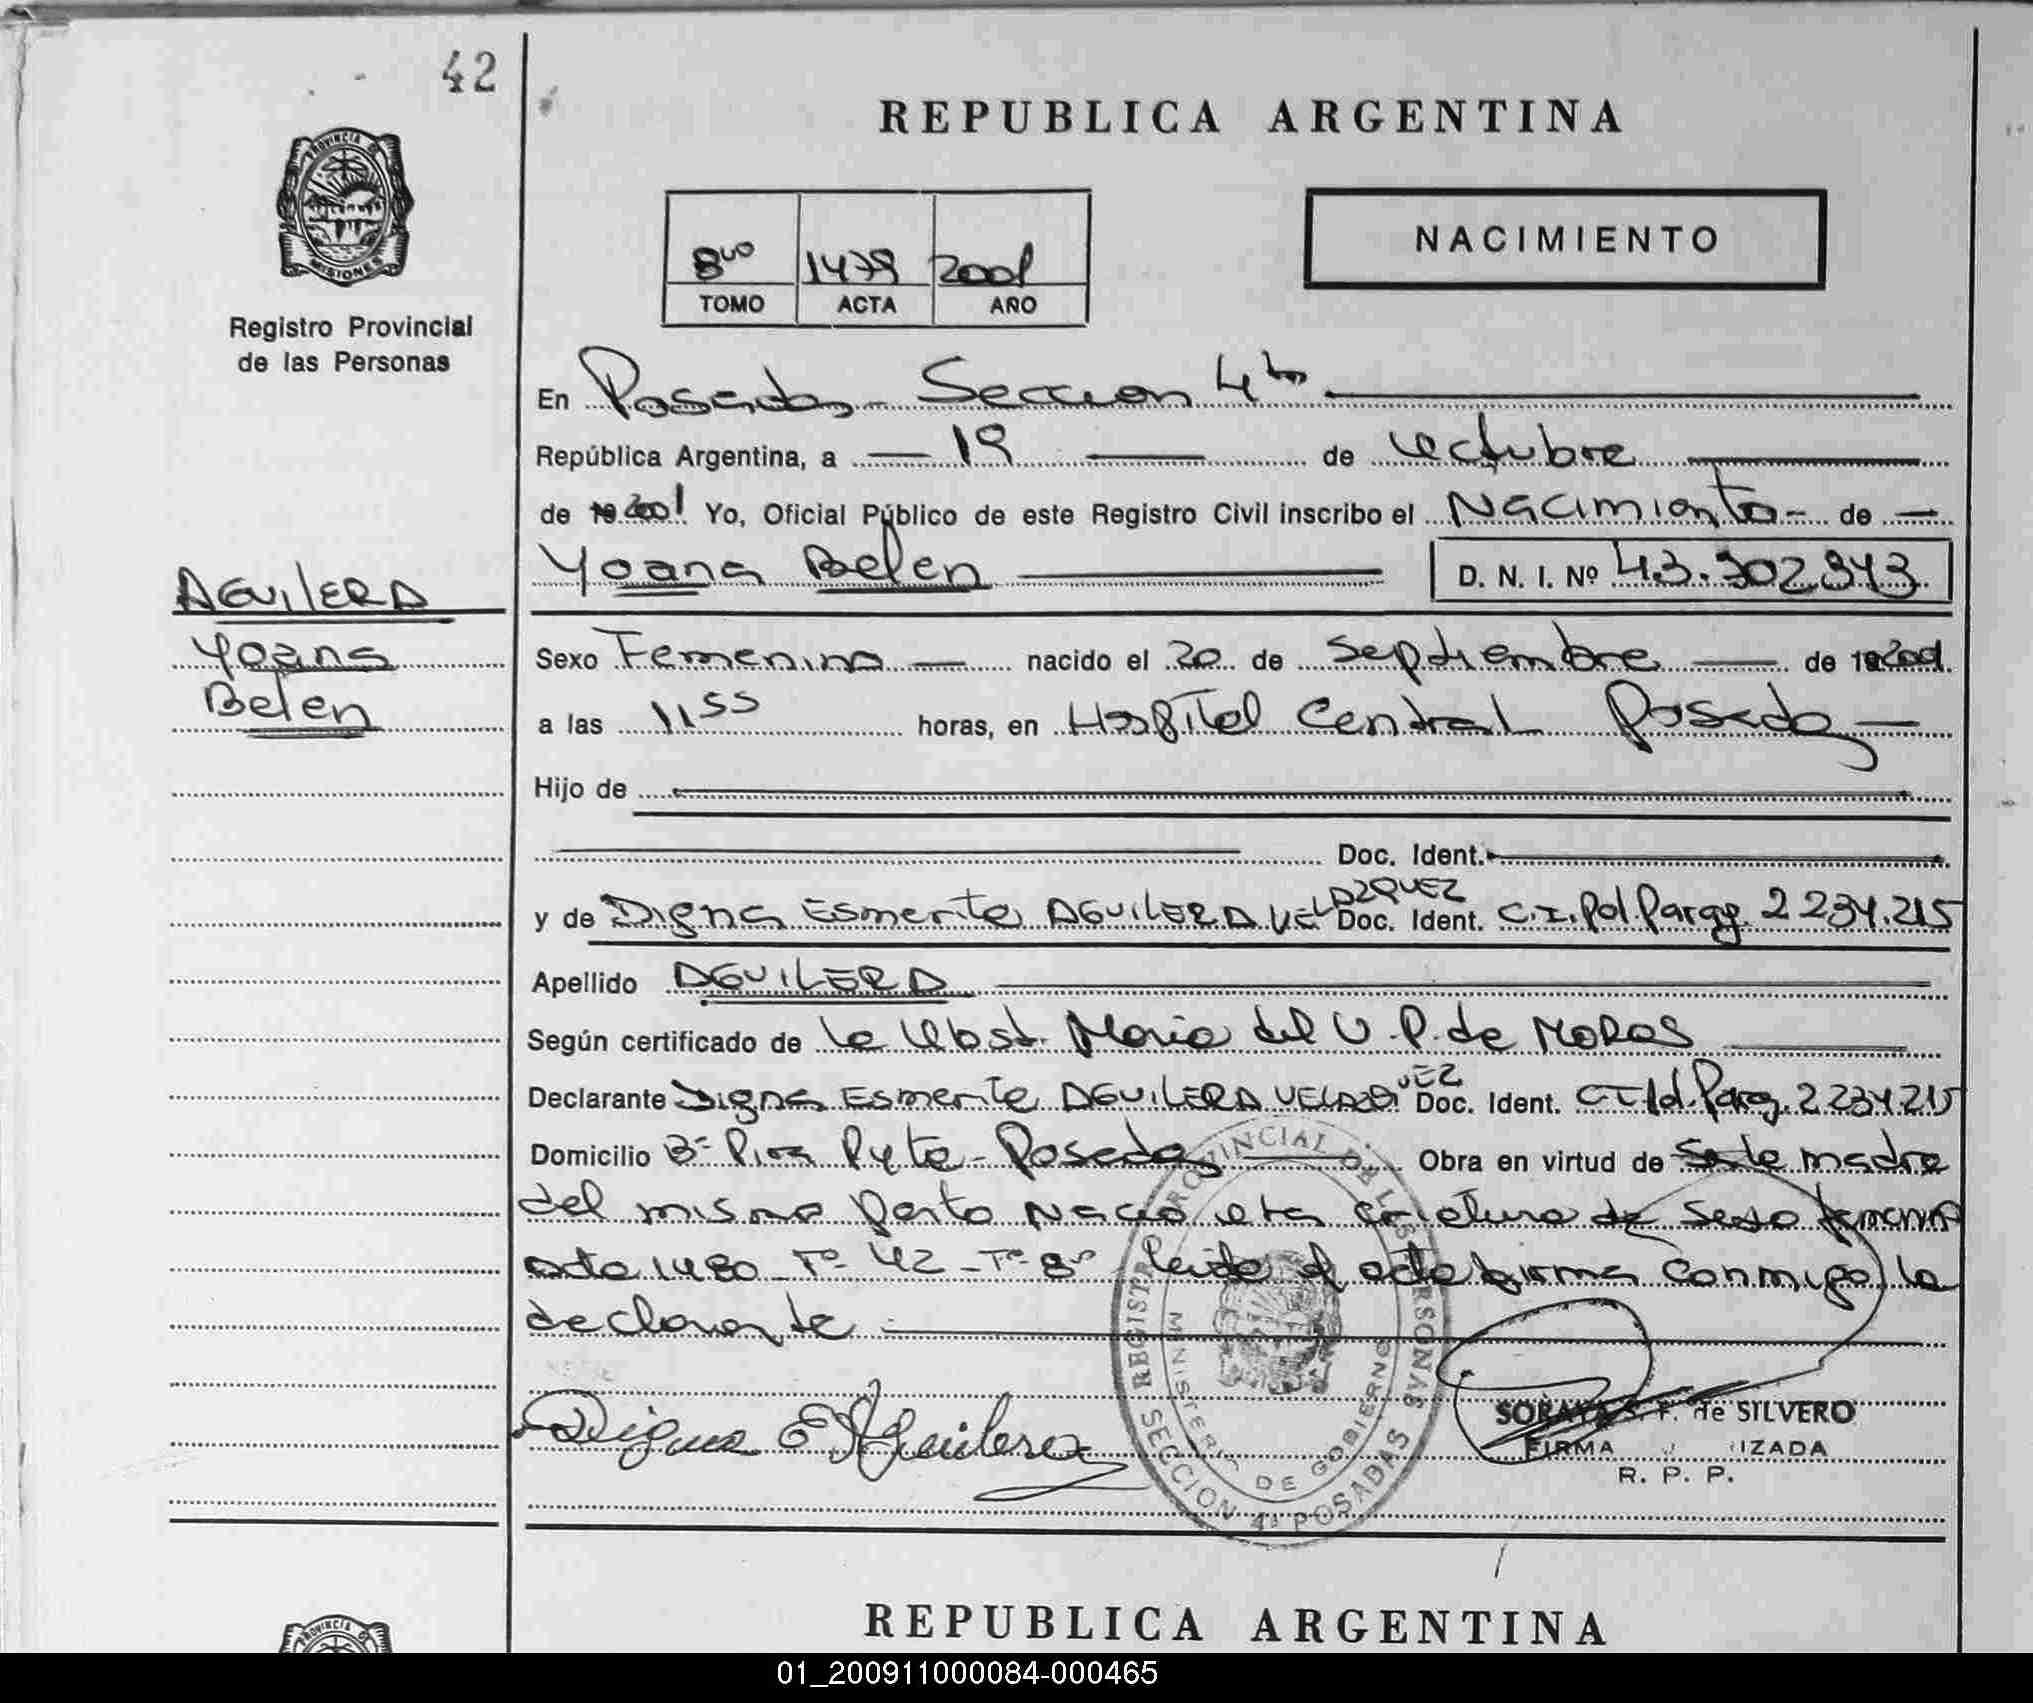 42
REPUBLICA ARGENTINA
PROVINCIA DE
MISIONES
Registro Provincial
de las Personas
8vo 1479 2001
TOMO ACTA AÑO
NACIMIENTO
En Posadas - Seccion 4ta
República Argentina, a 19 de octubre
de 19 2001 Yo, Oficial Público de este Registro Civil inscribo el Nacimiento - de
Yoana Belen D. N. I. Nº 43.302.343
AGUILERA
Yoana
Belen
Sexo Femenino nacido el 20 de Septiembre de 19 2001
a las 11 55 horas, en Hospital Central Posadas
Hijo de
Doc. Ident.
y de Digna Esmerita AGUILERA VELAZQUEZ Doc. Ident. C.I. Pol. Paragy. 2 234.215
Apellido AGUILERA
Según certificado de la Obst. Maria del V. P. de MORAS
Declarante Digna Esmerita AGUILERA VELAZQUEZ Doc. Ident. C I Pol. Parag. 2 234 215
Domicilio Bº Pira Pyta - Posadas Obra en virtud de
del mismo parto nacio otra criatura de sexo femenino
acta 1480 - Fº 42 - Tº 8vo Leida el acta firma conmigo la
declarante
Digna E Aguilera
REGISTRO PROVINCIAL DE LAS PERSONAS
MINISTERIO DE GOBIERNO
SECCION 4ª POSADAS
SORAYA F. de SILVERO
FIRMA IZADA
R. P. P.
REPUBLICA ARGENTINA
01_200911000084-000465